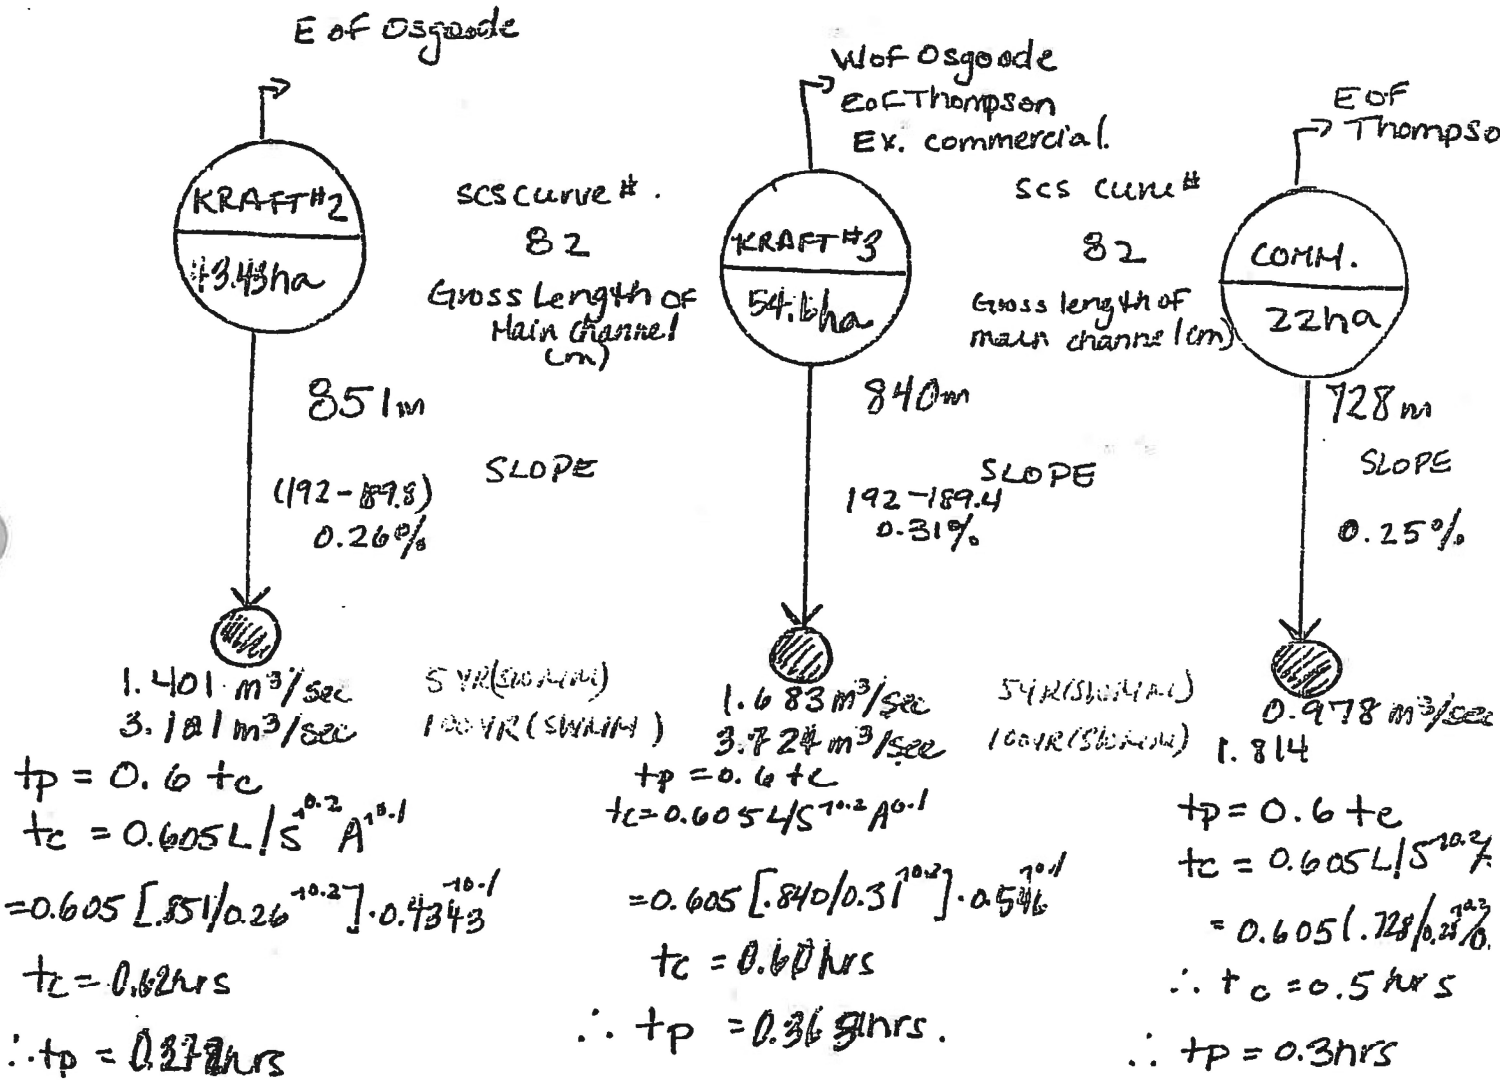 E of Osgoode
KRAFT#2
43.43ha
SCS curve #.
82
Gross Length of
Main Channel
(m)
851m
SLOPE
(192-189.8)
0.26%
1.401 m³/sec
5 YR(SWMM)
3.181 m³/sec
100YR(SWMM)
tp = 0.6 tc
tc = 0.605L/S^0.2 A^0.1
=0.605 [.851/0.26^0.2]·0.4343^0.1
tc = 0.62hrs
∴tp = 0.372hrs
W of Osgoode
E of Thompson
Ex. commercial.
KRAFT#3
54.6ha
SCS curve #
82
Gross length of
main channel (m)
840m
SLOPE
192-189.4
0.31%
1.683 m³/sec
5YR(SWMM)
3.724 m³/sec
100YR(SWMM)
tp = 0.6 tc
tc=0.605L/S^0.2 A^0.1
=0.605 [.840/0.31^0.2]·0.546^0.1
tc = 0.60hrs
∴ tp = hrs.
E OF
Thompso
COMM.
22ha
728m
SLOPE
0.25%
0.978 m³/sec
1.814
tp = 0.6 tc
tc = 0.605L/S^0.2/
= 0.605(.728/0.25^0.2/0.
∴ tc = 0.5 hrs
∴ tp = 0.3hrs